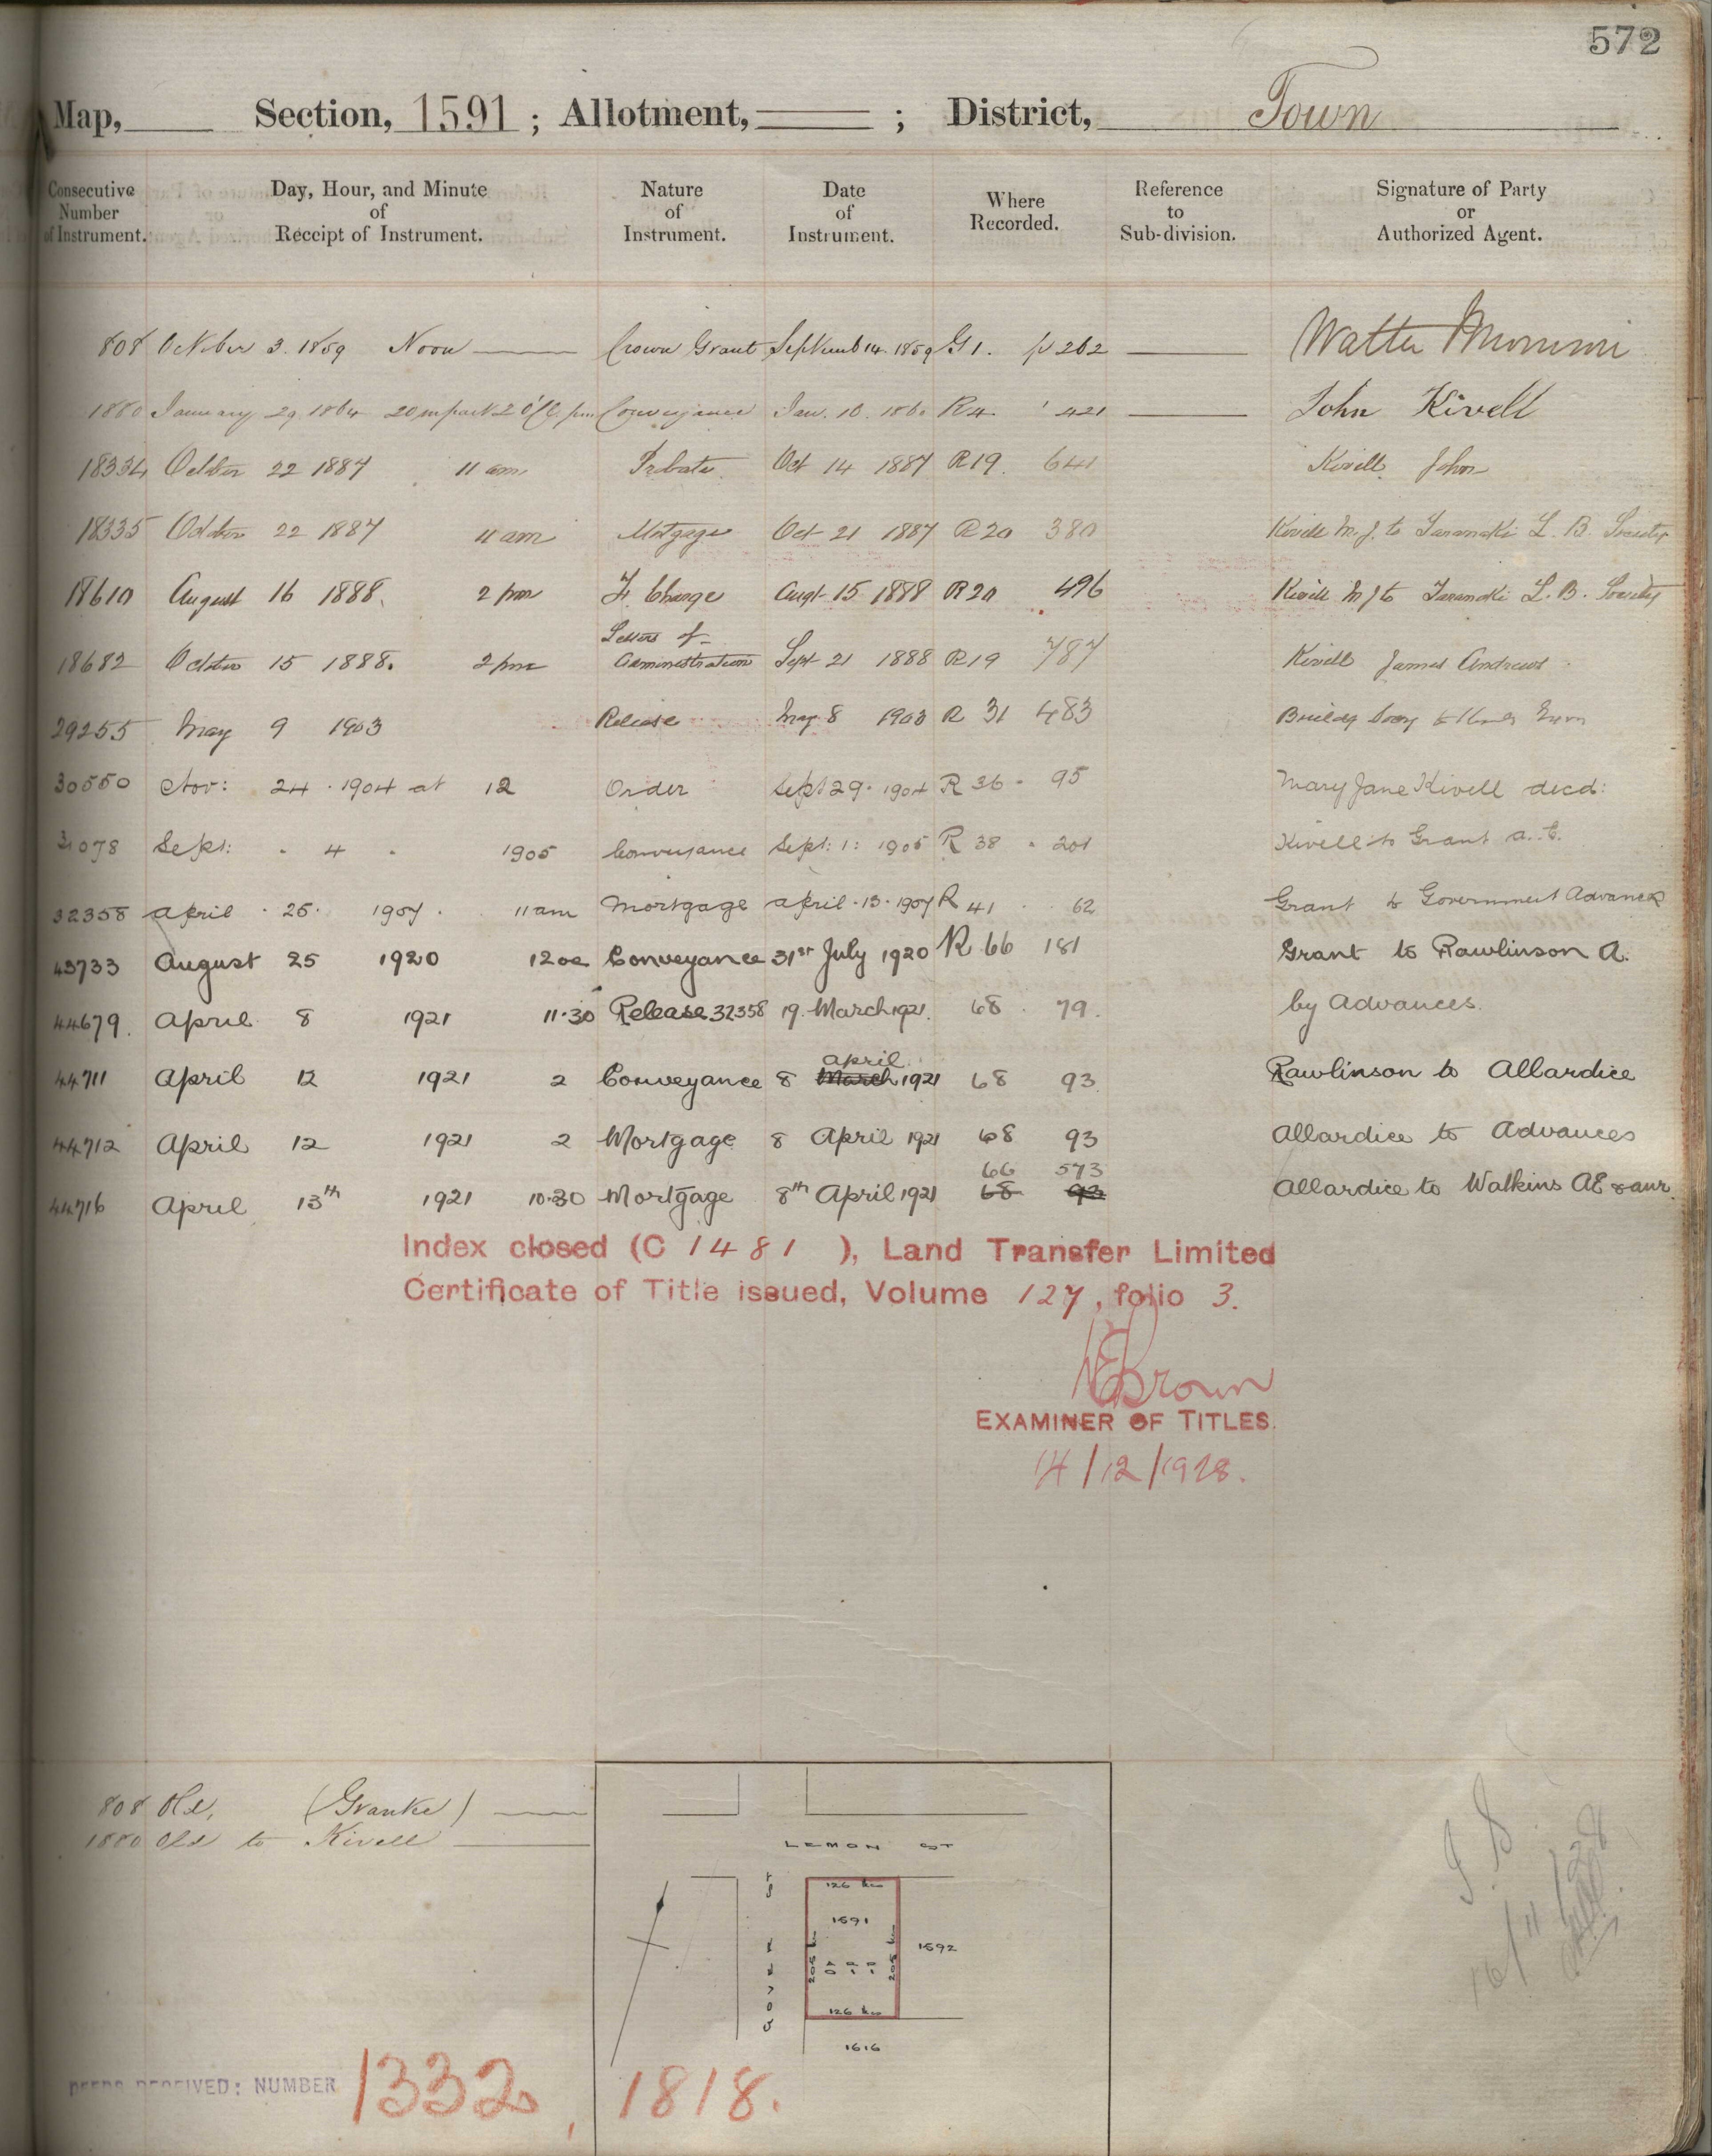 572
Map, Section, 1591 ; Allotment, ; District, Town
Consecutive Number of Instrument.
Day, Hour, and Minute of Receipt of Instrument.
Nature of Instrument.
Date of Instrument.
Where Recorded.
Reference to Sub-division.
Signature of Party or Authorized Agent.
808 October 3. 1859 Noon Crown Grant September 14. 1859 G 1. p 262 Walter
1880 January 29. 1864 20 m past 2 o'C. pm Conveyance Jan. 16. 186 R4 421 John Kivell
18334 October 22 1887 11 am Probate Oct 14 1887 R19. 641 Kivell John
18335 October 22 1887 11 am Mortgage Oct 21 1887 R20 380 Kivell M. J. to Taranaki L. B. Society
18610 August 16 1888. 2 pm F. Charge Augt 15 1888 R20 496 Kivell M J to Taranaki L. B. Society
18682 October 15 1888. 2 pm Letters of Administration Sept 21 1888 R19 787 Kivell James Andrews
29255 May 9 1903 Release May 8 1903 R 31 483 Building Socy to
30550 Nov: 24 . 1904 at 12 Order Sept 29. 1904 R 36 . 95 Mary Jane Kivell decd:
31078 Sept: . 4 . 1905 Conveyance Sept: 1: 1905 R 38 . 201 Kivell to Grant a. C.
32358 April . 25. 1907. 11 am Mortgage April . 13 . 1907 R 41 . 62 Grant to Government Advances
43733 August 25 1920 12oc Conveyance 31st July 1920 R 66 181 Grant to Rawlinson A.
44679. April 8 1921 11.30 Release 32358 19. March 1921. 68 . 79. by Advances.
44711 April 12 1921 2 Conveyance 8 March april 1921 68 93. Rawlinson to Allardice
44712 April 12 1921 2 Mortgage 8 April 1921 68 93 Allardice to Advances
44716 April 13th 1921 10.30 Mortgage 8th April 1921 68 93 66 573 Allardice to Walkins AE & anr.
Index closed (C 1481 ), Land Transfer Limited
Certificate of Title issued, Volume 127, folio 3.
Brown
EXAMINER OF TITLES.
14/12/1928.
808 Old, (Grantee)
1880 Old to Kivell
LEMON ST
GOVER ST
126 ks
1591
205 ks
205 ks
1592
A R P
0 1 1
126 ks
1616
16/11/28
DEEDS RECEIVED: NUMBER 1332, 1818.